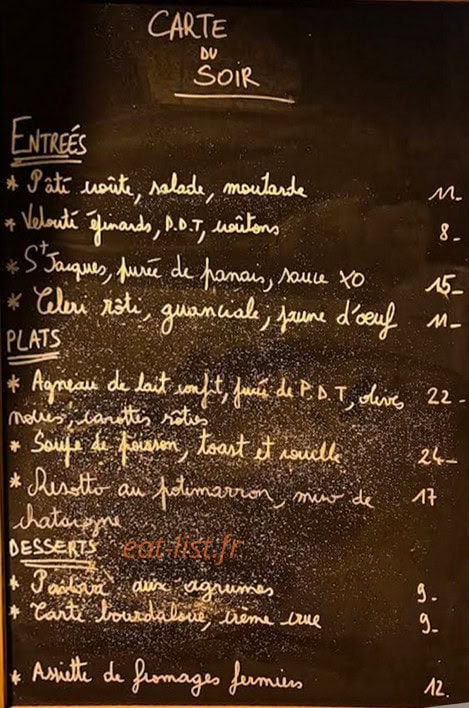 CARTE
DU
SOIR
ENTREÉS
* Pâté croûte, salade, moutarde 11-
* Velouté épinards, P.D.T, croûtons 8-
* St Jacques, purée de panais, sauce XO 15-
* Céleri rôti, guanciale, jaune d'oeuf 11-
PLATS
* Agneau de lait confit, purée de P.D.T, olives 22-
noires, carottes rôties
* Soupe de poisson, toast et rouille 24-
* Risotto au potimarron, miso de 17
chataigne
DESSERTS eat-list.fr
* aux agrumes 9-
* Tarte bourdaloue, crème crue 9-
* Assiette de fromages fermiers 12.